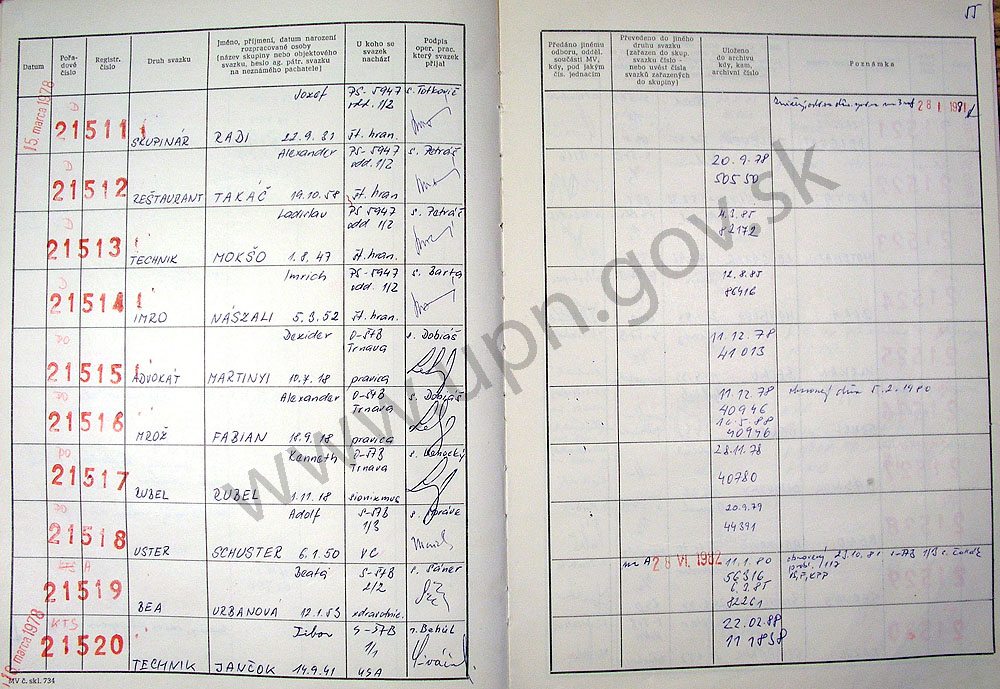 55
Datum
Pořadové číslo
Registr. číslo
Druh svazku
Jméno, příjmení, datum narození
rozpracované osoby
(název skupiny nebo objektového
svazku, heslo ag. pátr. svazku
na neznámého pachatele)
U koho se
svazek
nachází
Podpis
oper. prac.
který svazek
přijal
Předáno jinému
odboru, odděl.
součásti MV,
kdy, pod jakým
čís. jednacím
Převedeno do jiného
druhu svazku
(zařazen do skup.
svazku číslo -
nebo uvést čísla
svazků zařazených
do skupiny)
Uloženo
do archivu
kdy, kam,
archivní číslo
Poznámka
15. marca 1978
D
21511
SKUPINÁR
Jozef
RADI 22.9.33
PS-5947
odd. 1/2
št. hran.
28 I
D
21512
REŠTAURANT
Alexander
TAKÁČ 19.10.58
PS-5947
odd 1/2
št. hran
s. Petráš
20.9.78
50550
D
21513
TECHNIK
Ladislav
MOKŠO 1.8.47
PS 5947
odd 1/2
št. hran.
s. Petráš
4.3.85
82172
D
21514
IMRO
Imrich
NÁSZALI 5.3.52
PS-5947
odd. 1/2
št. hran.
s. Barta
12.8.85
86416
PO
21515
ADVOKÁT
Dexider
MARTINYI 10.7.18
O-ŠTB
Trnava
pravica
s. Dobiáš
11.12.78
41013
PO
21516
MROŽ
Alexander
FABIAN 18.9.18
O-ŠTB
Trnava
pravica
s. Dobiáš
11.12.78
40946
40946
5.2.1980
PO
21517
RUBEL
Kenneth
RUBEL 1.11.18
O-ŠTB
Trnava
sionizmus
28.11.78
40780
PO
21518
USTER
Adolf
SCHUSTER 6.1.50
S-ŠTB
1/3
VC
20.9.79
44391
A
21519
BEA
Beata
URBANOVÁ 12.1.53
S-ŠTB
2/2
zdravotníc.
s. Sáner
28 VI. 1982
11.1.80
56316
6.3.85
82261
16. marca 1978
KTS
21520
TECHNIK
Tibor
JANČOK 14.9.41
S-ŠTB
1/1
USA
s. Behúl
22.02.88
111838
MV č. skl. 734
www.upn.gov.sk